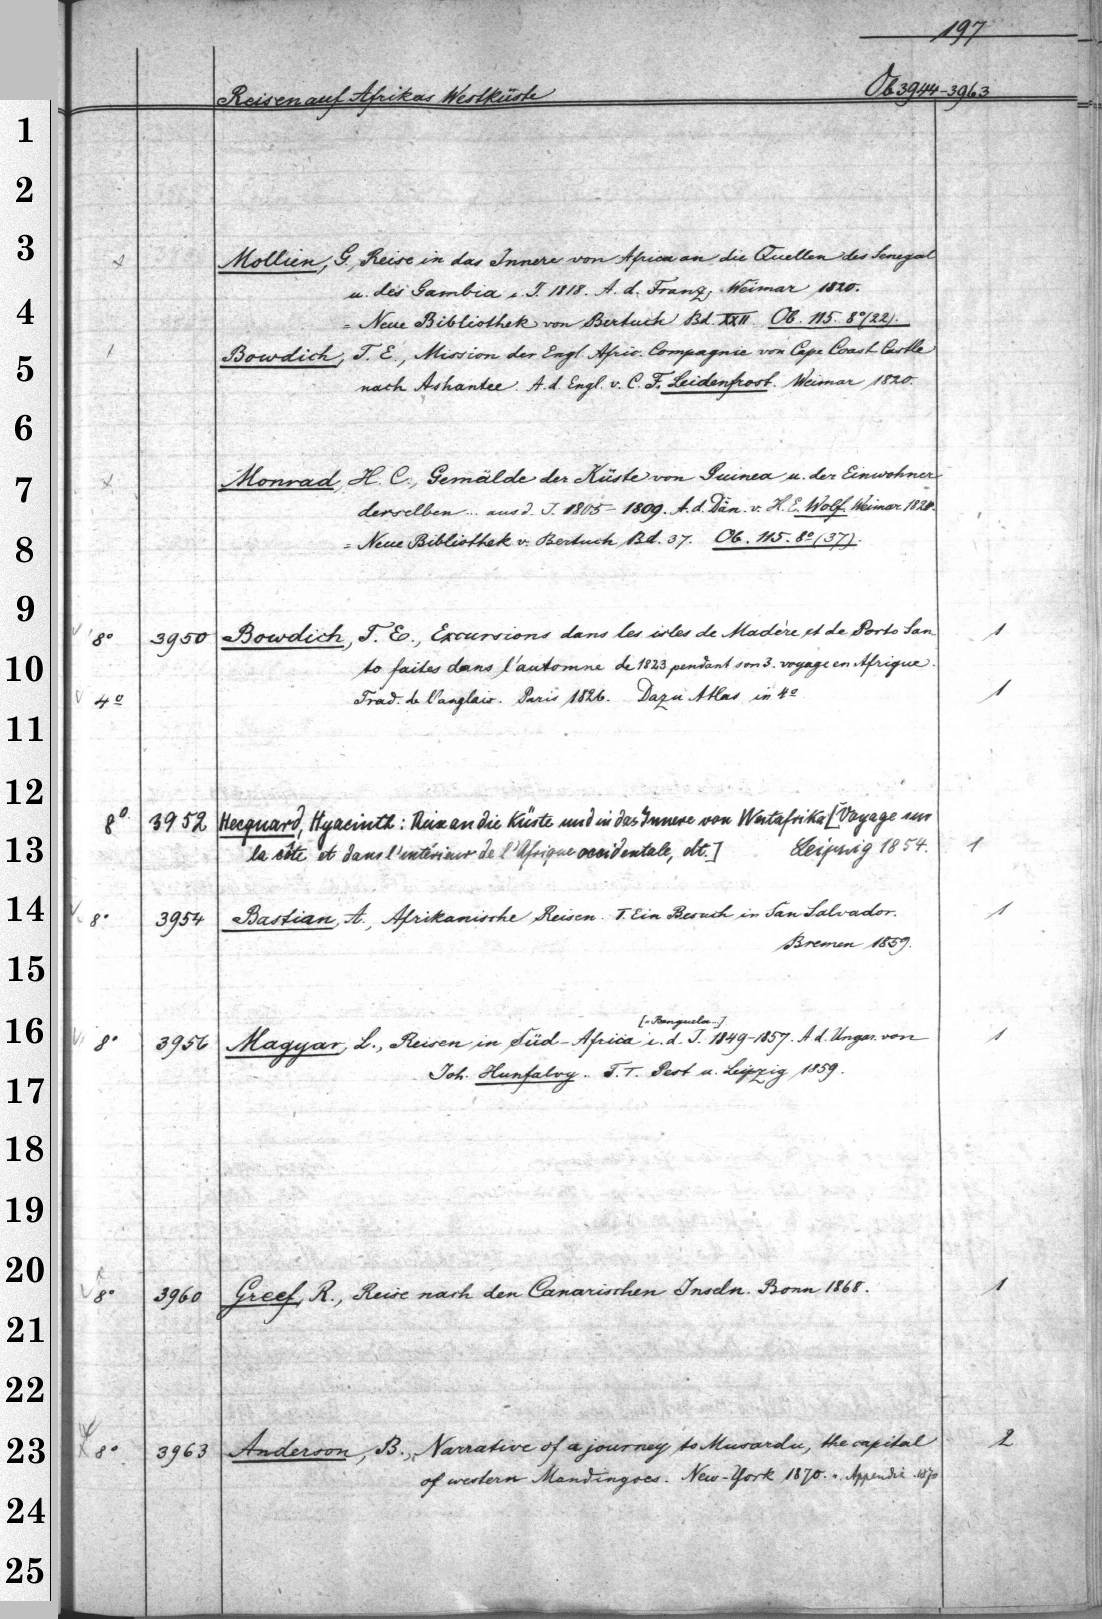 197
Reisen auf Afrikas Westküste Ob 3944-3963
1
2
3 Mollien, G., Reise in das Innere von Africa an die Quellen des Senegal
u. des Gambia i. J. 1818. A. d. Franz. Weimar 1820.
4 = Neue Bibliothek von Bertuch Bd. XXII. Ob. 115. 8°(22).
5 Bowdich, T. E., Mission der Engl. Afric. Compagnie von Cape Coast Castle
nach Ashantee. A. d. Engl. v. C. F. Leidenfrost. Weimar 1820.
6
7 Monrad, H. C., Gemälde der Küste von Guinea u. der Einwohner
derselben ... aus d. J. 1805-1809. A. d. Dän. v. H. E. Wolf. Weimar 1824.
8 = Neue Bibliothek v. Bertuch Bd. 37. Ob. 115. 8° (37).
9 8° 3950 Bowdich, T. E., Excursions dans les isles de Madère et de Porto San- 1
10 to faites dans l'automne de 1823 pendant son 3. voyage en Afrique.
4° Trad. de l'anglais. Paris 1826. Dazu Atlas in 4° 1
11
12 8° 3952 Hecquard, Hyacinth: Reise an die Küste und in das Innere von Westafrika [Voyage sur
13 la côte et dans l'intérieur de l'Afrique occidentale, dt.] Leipzig 1854. 1
14 8° 3954 Bastian, A., Afrikanische Reisen. I. Ein Besuch in San Salvador. 1
Bremen 1859.
15
[= Benguela..]
16 8° 3956 Magyar, L., Reisen in Süd-Africa i. d. J. 1849-1857. A. d. Ungar. von 1
17 Joh. Hunfalvy. T. I. Pest u. Leipzig 1859.
18
19
20 8° 3960 Greef, R., Reise nach den Canarischen Inseln. Bonn 1868. 1
21
22
23 8° 3963 Anderson, B., Narrative of a journey to Musardu, the capital 2
of western Mandingoes. New-York 1870. u. Appendix 1870
24
25